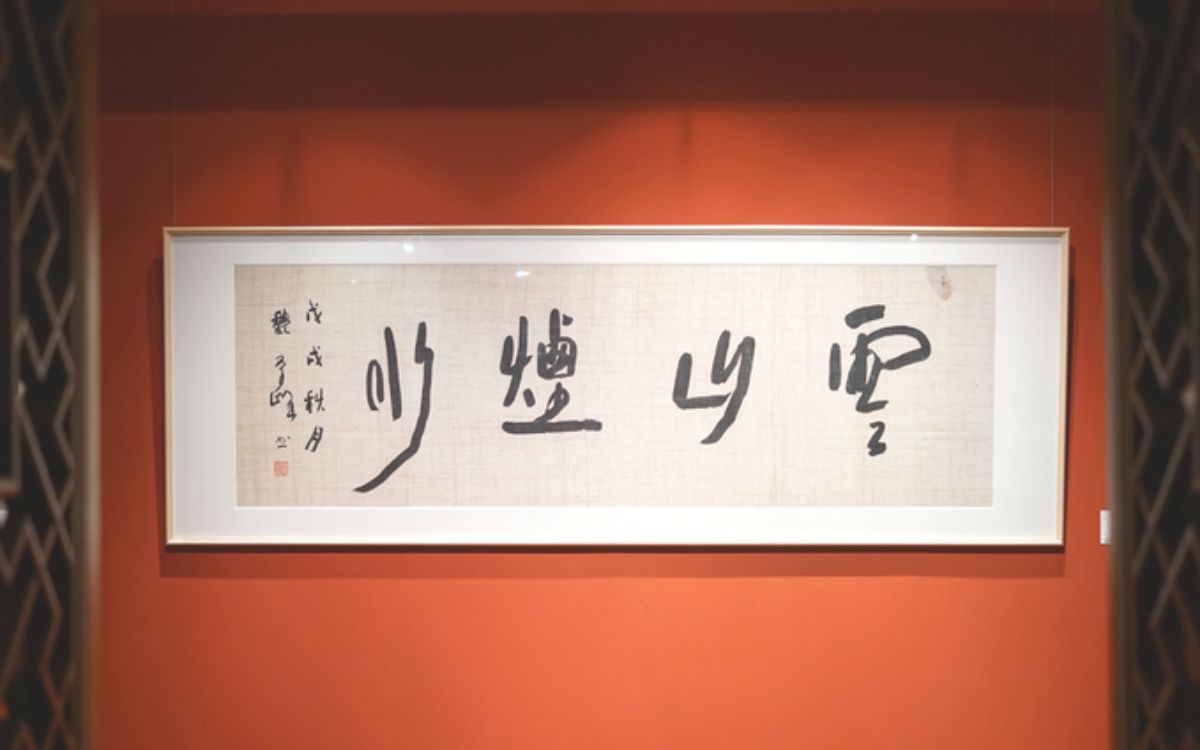 雲山煙水
戊戌秋月
峰